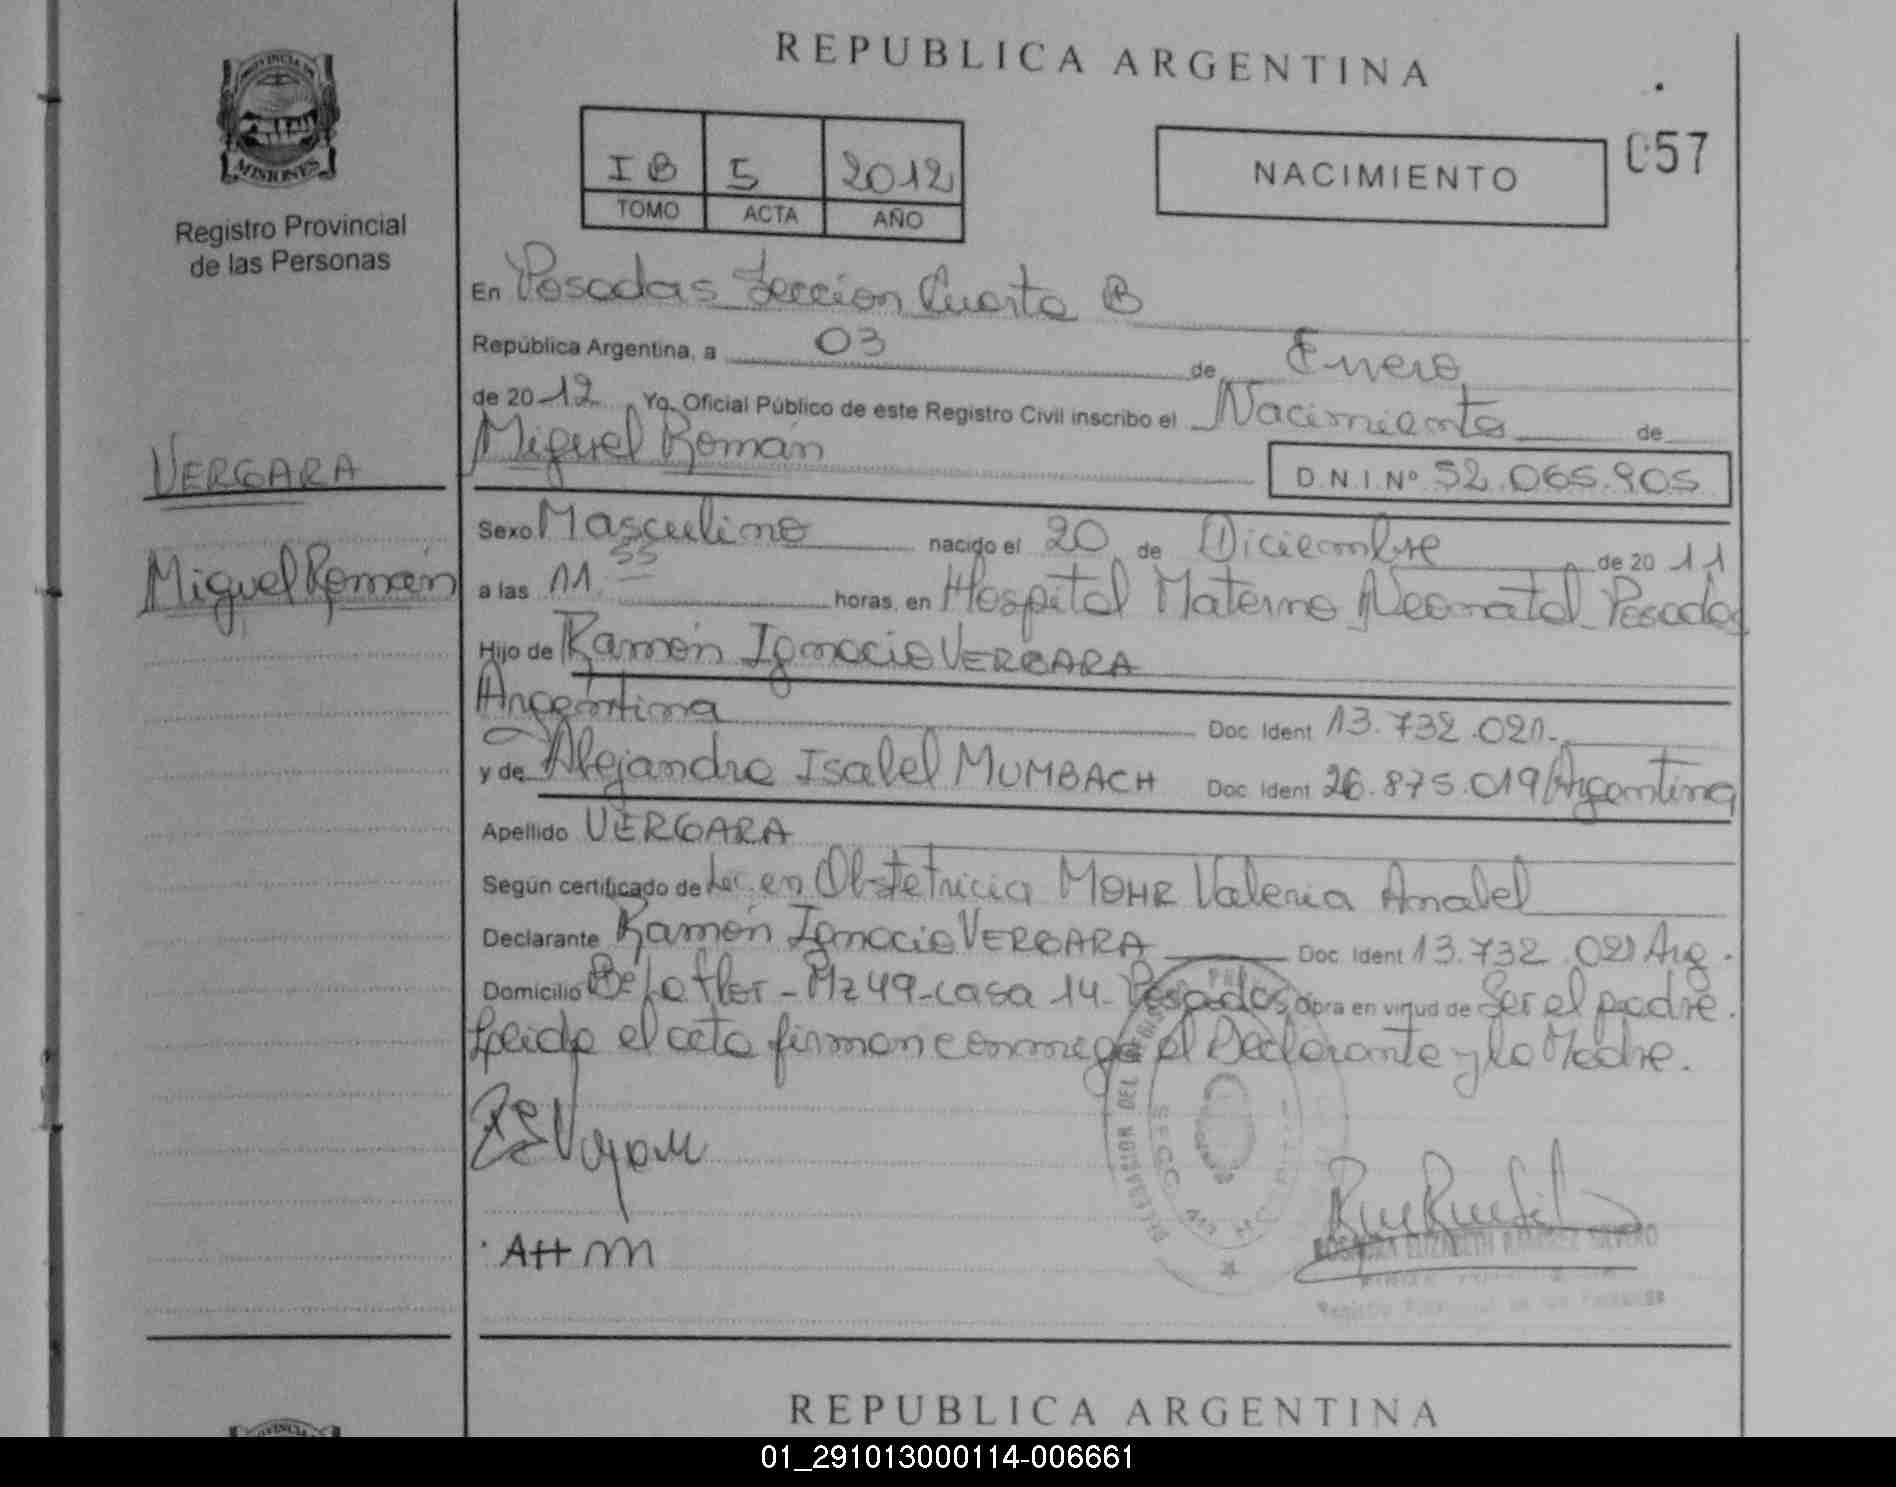 REPUBLICA ARGENTINA
PROVINCIA DE
MISIONES
Registro Provincial
de las Personas
I B 5 2012
TOMO ACTA AÑO
NACIMIENTO
057
En Posadas Seccion Cuarta B
República Argentina, a 03 de Enero
de 2012 Yo, Oficial Público de este Registro Civil inscribo el Nacimiento de
Miguel Román
D.N.I.Nº 52.065.905
VERGARA
Miguel Román
Sexo Masculino nacido el 20 de Diciembre de 2011
a las 11.55 horas, en Hospital Materno Neonatal Posadas
Hijo de Ramón Ignacio VERGARA
Argentina Doc Ident 13.732.021.-
y de Alejandra Isabel MUMBACH Doc Ident 26.875.019 Argentina
Apellido VERGARA
Según certificado de Lic. en Obstetricia MOHR Valeria Anabel
Declarante Ramón Ignacio VERGARA Doc Ident 13.732.021 Arg.
Domicilio Mz 49-casa 14- Posadas Obra en virtud de Ser el padre.
Leida el acta firman conmigo el Declarante y la Madre.
DEL
SECC
ELIZABETH RAMIREZ SILVERO
REPUBLICA ARGENTINA
01_291013000114-006661